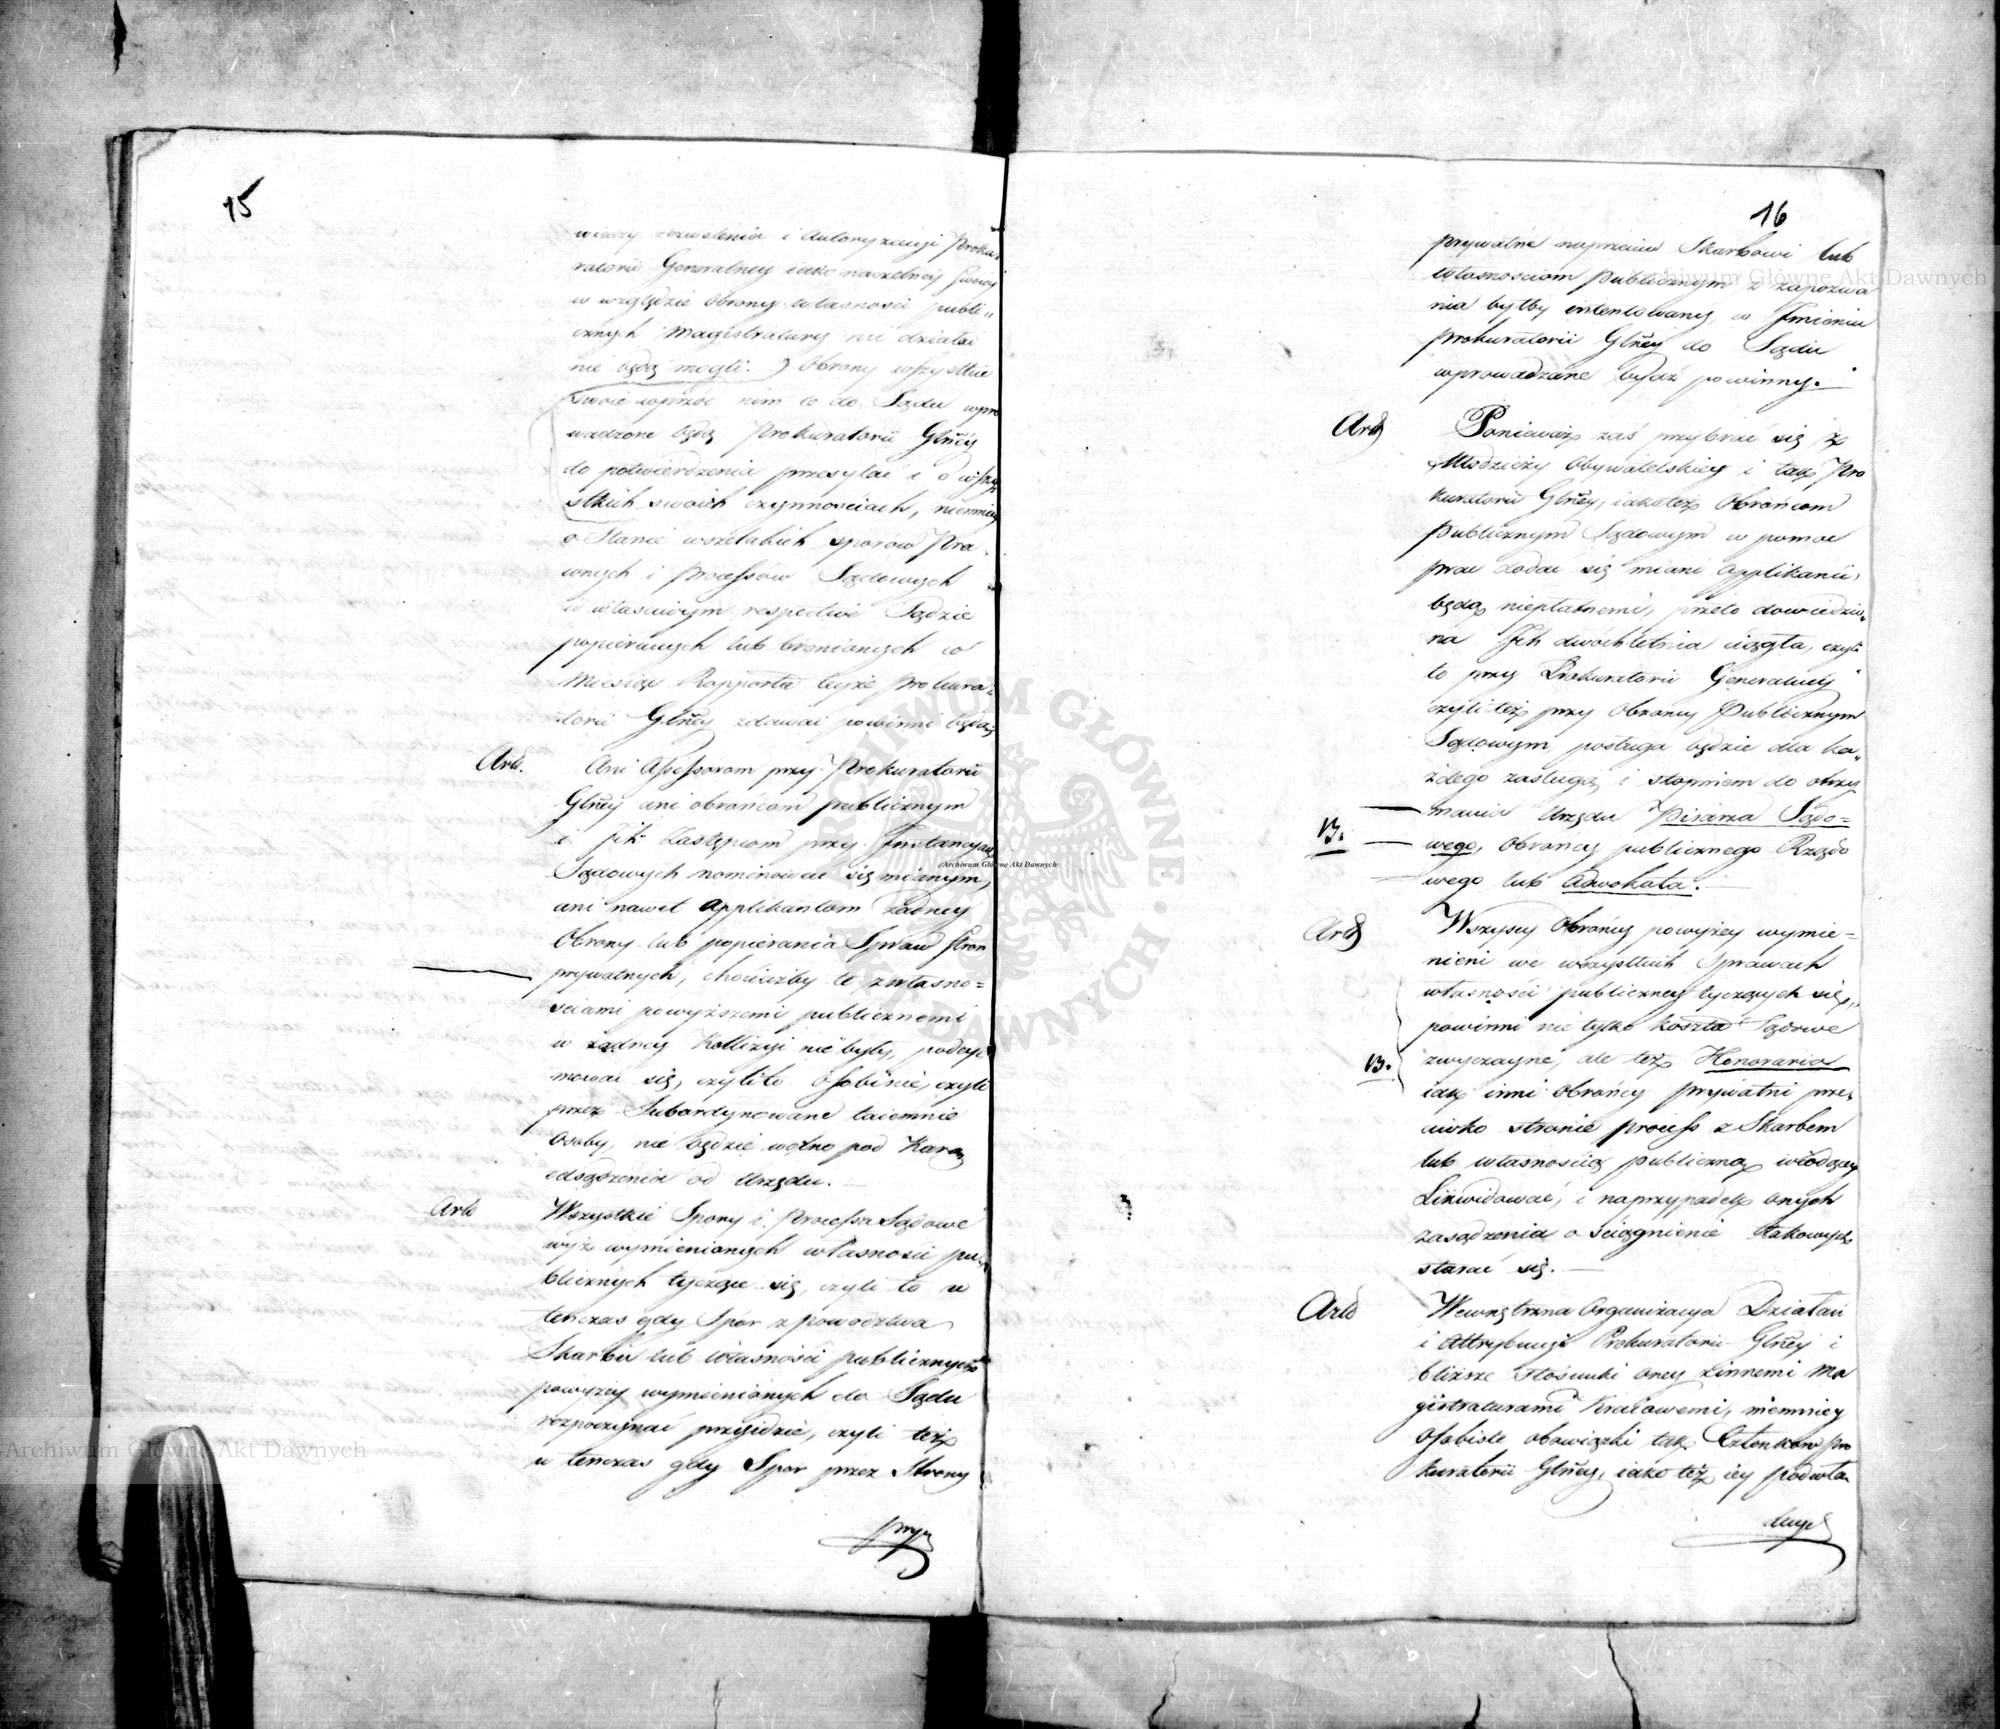 15
wiedzy zezwolenia i autoryzacyi Proku-
ratorii Generalney iako naczelney swoiey
w względzie obrony własności publi-
cznych Magistratury nie działać
nie będą mogli. Obrony wszystkie
swoie wprzód nim te do Sądu wpro
wadzone będą Prokuratorii Glney
do potwierdzenia przesyłać i o wszy
stkich swoich czynnościach, niemniey
o Stanie wszelakich sporow Pra-
wnych i processów Sądowych
w właściwym respective Sądzie
popieranych lub bronionych co
Miesiąc Rapporta teyże Prokura-
torii Glney zdawać powinni będą
Art. Ani Assessorom przy Prokuratorii
Glney ani obrońcom publicznym
i Jch Zastępcom przy Jnstancyach
Sądowych nominować się mianym,
ani nawet Applikantom żadney
Obrony lub popierania Spraw stron
prywatnych, chociażby te z własno=
ściami powyższemi publicznemi
w żadney Kollizyi nie były, podeyi
mować się, czyli to osobiście, czyli
przez Subordynowane taiemnie
osoby, nie będzie wolno pod Karą
odsądzenia od Urzędu.
Art Wszystkie Spory i Processa Sądowe
wyż wymienionych własności pu-
blicznych tyczące się, czyli to w
tenczas gdy Spor z powodztwa
Skarbu lub własności publicznych
powyżey wymienionych do Sądu
rozpoczynać przyidzie, czyli też
w tenczas gdy Spor przez Strony
pry
16
prywatne naprzeciw Skarbowi lub
własnosciom publicznym z zapozwa
nia byłby intentowany, w Jmieniu
Prokuratorii Glney do Sądu
wprowadzane bydź powinny.
Art Ponieważ zaś przybrać się z
Młodzieży Obywatelskiey i tak Pro
kuratorii Glney, iako też Obrońcom
Publicznym Sądowym w pomoc
prac dodać się miani Applikanci,
będą niepłatnemi, przeto dowiedzio-
na Jch dwóchletnia ciągła, czyli
to przy Prokuratorii Generalney
czyli też przy Obrońcy Publicznym
Sądowym posługa będzie dla ka-
żdego zasługą i stopniem do otrzy
mania Urzędu Pisarza Sądo=
B. wego, Obrońcy publicznego Rządo
wego lub Adwokata.
Art Wszyscy Obrońcy powyżey wymie=
nieni we wszystkich Sprawach
własności publiczney tyczących się,
powinni nie tylko koszta Sądowe
B. zwyczayne, ale też Honoraria
iak inni obrońcy prywatni prze
ciwko stronie process z Skarbem
lub własnością publiczną wiodącey
Likwidować, i na przypadek onych
zasądzenia o ściągnienie takowych
starać się.
Art Wewnętrzna Organizacya Działań
i Attrybucyi Prokuratorii Glney i
bliższe stosunki oney z innemi Ma
gistraturami Kraiowemi, niemniey
Osobiste obowiązki tak Członków Pro
kuratorii Glney, iako też iey podwła
Archiwum Główne Akt Dawnych
Archiwum Główne Akt Dawnych
Archiwum Główne Akt Dawnych
ARCHIWUM GŁÓWNE AKT DAWNYCH